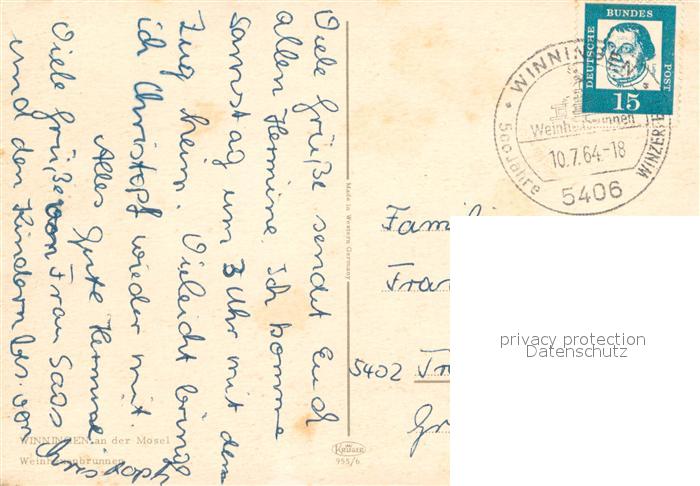 Viele Grüße sendet Euch
allen Hermine. Ich komme
Samstag um 3 Uhr mit dem
Zug heim. Vieleicht bringe
ich Christoph wieder mit.
Alles Gute Hermine
Viele Grüße von Frau Saas
und den Kindern u. von Christoph
WINNINGEN an der Mosel
Weinhexenbrunnen
Made in Western Germany
KRÜGER
955/6
DEUTSCHE BUNDESPOST
15
WINNINGEN
Weinhexenbrunnen
10.7.64.-18
500 Jahre
WINZERFE
5406
Famili
Fran
5402
privacy protection
Datenschutz